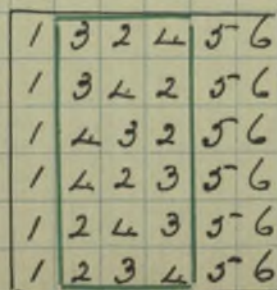 1 3 2 4 5 6
1 3 4 2 5 6
1 4 3 2 5 6
1 4 2 3 5 6
1 2 4 3 5 6
1 2 3 4 5 6